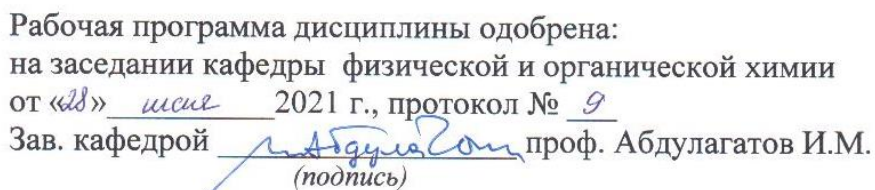 Рабочая программа дисциплины одобрена:
на заседании кафедры физической и органической химии
от «28» июне 2021 г., протокол № 9
Зав. кафедрой Абдулагат проф. Абдулагатов И.М.
(подпись)